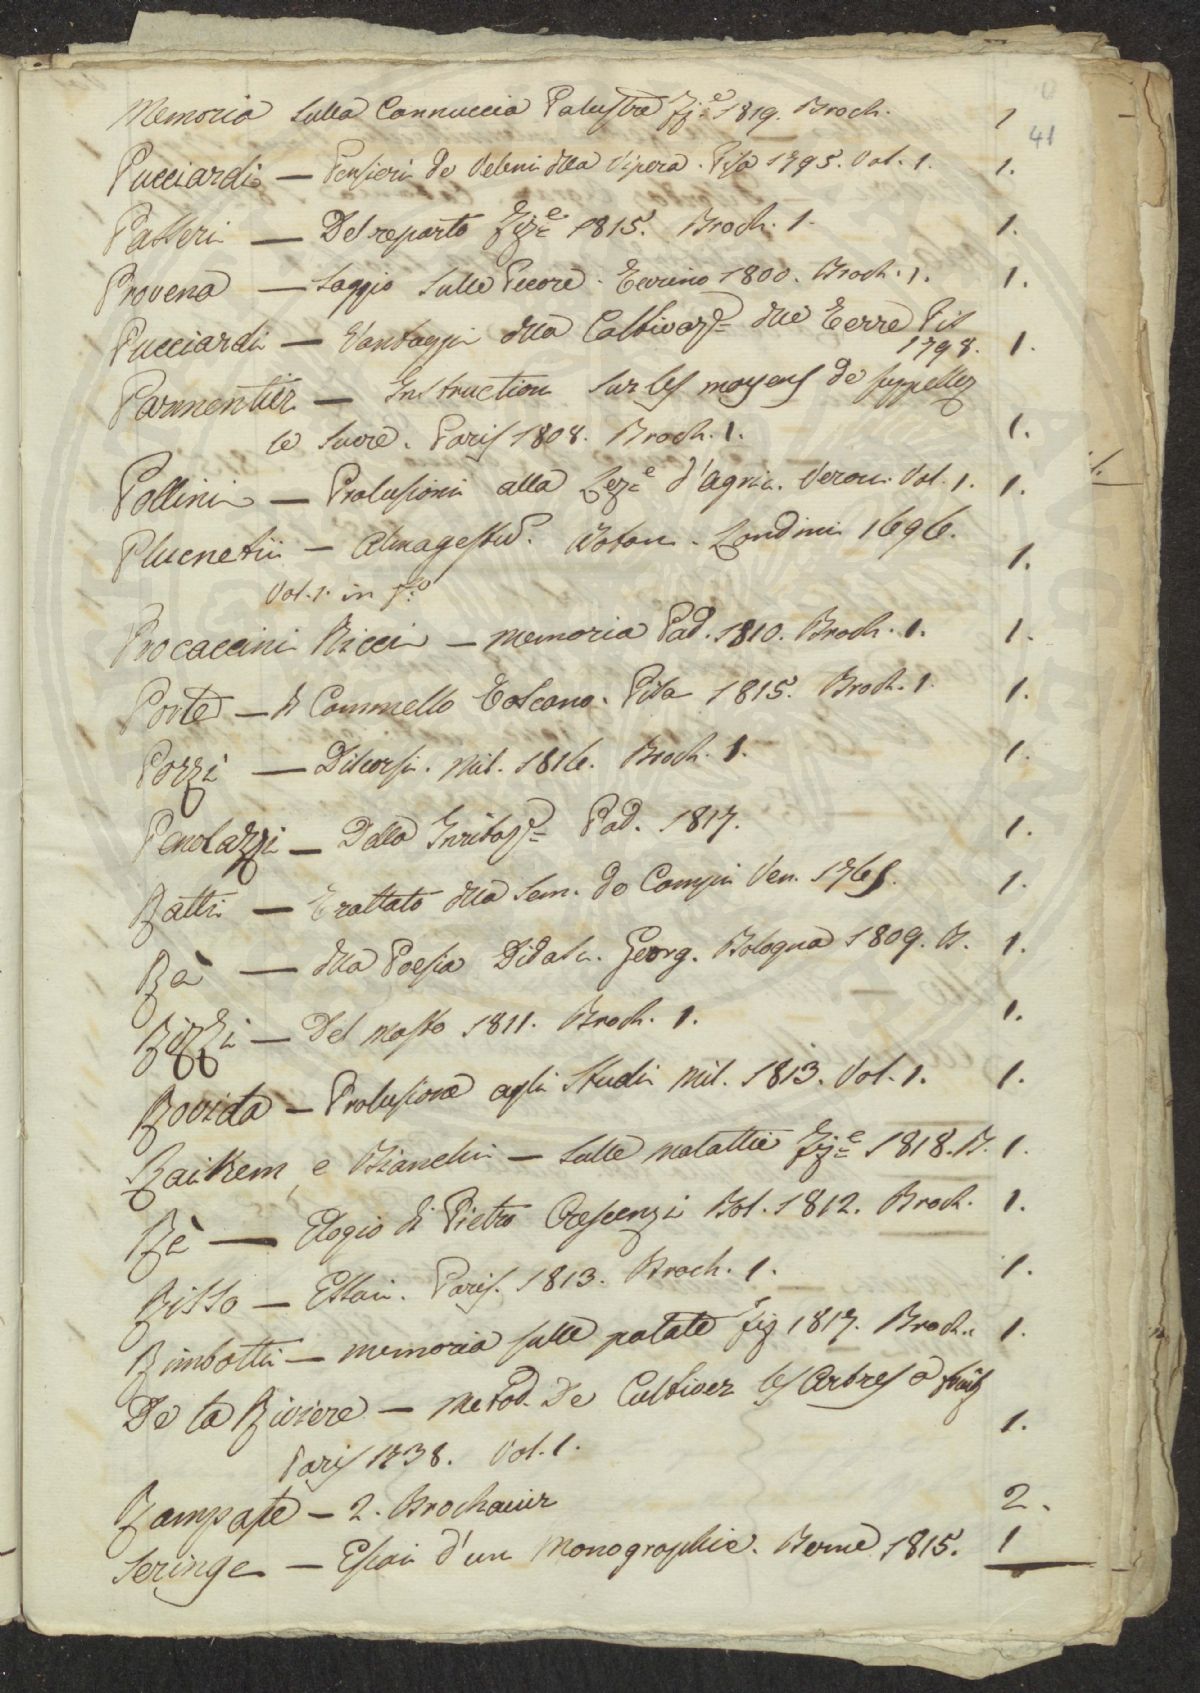 Memoria sulla Cannuccia Palustre Fze 1819. Broch. 1
41
Pucciardi — Pensieri de Veleni della Vipera. Pisa 1795. Vol. 1. 1.
Passeri — Del reparto Fze 1815. Broch. 1. 1.
Provena — Saggio sulle Pecore. Torino 1800. Broch. 1. 1.
Pucciardi — Vantaggi della Coltivaze delle Terre Pis
1798. 1.
Parmentier — Instruction sur les moyens de suppleer
le sucre. Paris 1808. Broch. 1. 1.
Pollini — Prolusioni alla Leze d'Agric. Veron. Vol. 1. 1.
Plucnetii — Almagestu. Botan. Londini 1696.
Vol. 1. in fo 1.
Procaccini Ricci — Memoria Pad. 1810. Broch. 1. 1.
Porte — Il Cammello Toscano. Pisa 1815. Broch. 1. 1.
Pozzi — Discorsi. Mil. 1816. Broch. 1. 1.
Penolazzi — Della Irritaze Pad. 1817. 1.
Ratti — Trattato della Sem. de Campi Ven. 1765. 1.
Re — della Poesia Didasc. Georg. Bologna 1809. B. 1.
Rizzi — Del Mosto 1811. Broch. 1. 1.
Rovida — Prolusione agli Studi Mil. 1813. Vol. 1. 1.
Raikem, e Bianchi — Sulle malattie Fze 1818. B. 1.
Rè — Elogio di Pietro Crescenzi Bol. 1812. Broch. 1.
Risso — Essai. Paris. 1813. Broch. 1. 1.
Rimbotti — memoria sulle patate Fig 1817. Broch. 1.
De la Riviere — Metod. De Cultiver les Arbres a fruits
Paris 1738. Vol. 1. 1.
Zampate — 2. Brochauir 2.
Seringe — Essai d'un Monographie. Berne 1815. 1